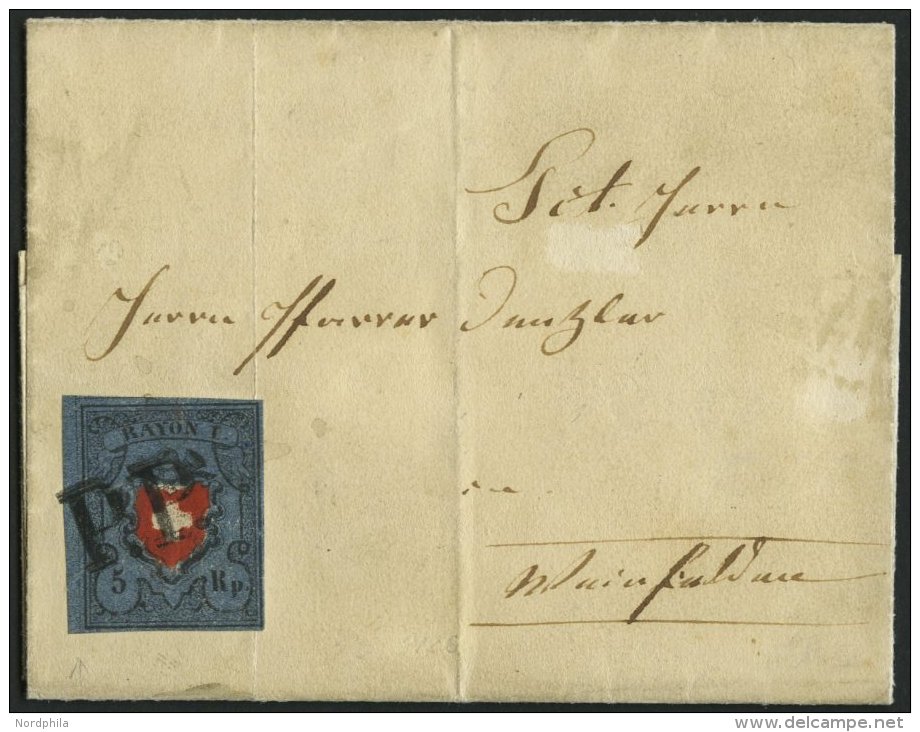 Tit. Herrn
Herrn Pfarrer Denzler
in
Weinfelden
RAYON I
PP
5 Rp.
Nordphila
www.delcampe.net